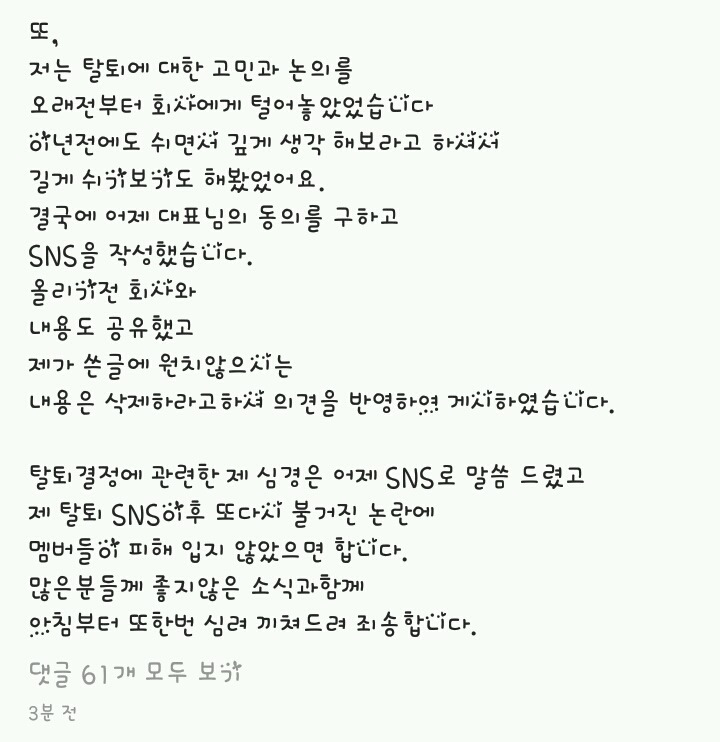 또,
저는 탈퇴에 대한 고민과 논의를
오래전부터 회사에게 털어놓았었습니다
이년전에도 쉬면서 깊게 생각 해보라고 하셔서
길게 쉬기보기도 해봤었어요.
결국에 어제 대표님의 동의를 구하고
SNS을 작성했습니다.
올리기전 회사와
내용도 공유했고
제가 쓴글에 원치않으시는
내용은 삭제하라고하셔 의견을 반영하여 게시하였습니다.
탈퇴결정에 관련한 제 심경은 어제 SNS로 말씀 드렸고
제 탈퇴 SNS이후 또다시 불거진 논란에
멤버들이 피해 입지 않았으면 합니다.
많은분들께 좋지않은 소식과함께
아침부터 또한번 심려 끼쳐드려 죄송합니다.
댓글 61개 모두 보기
3분 전